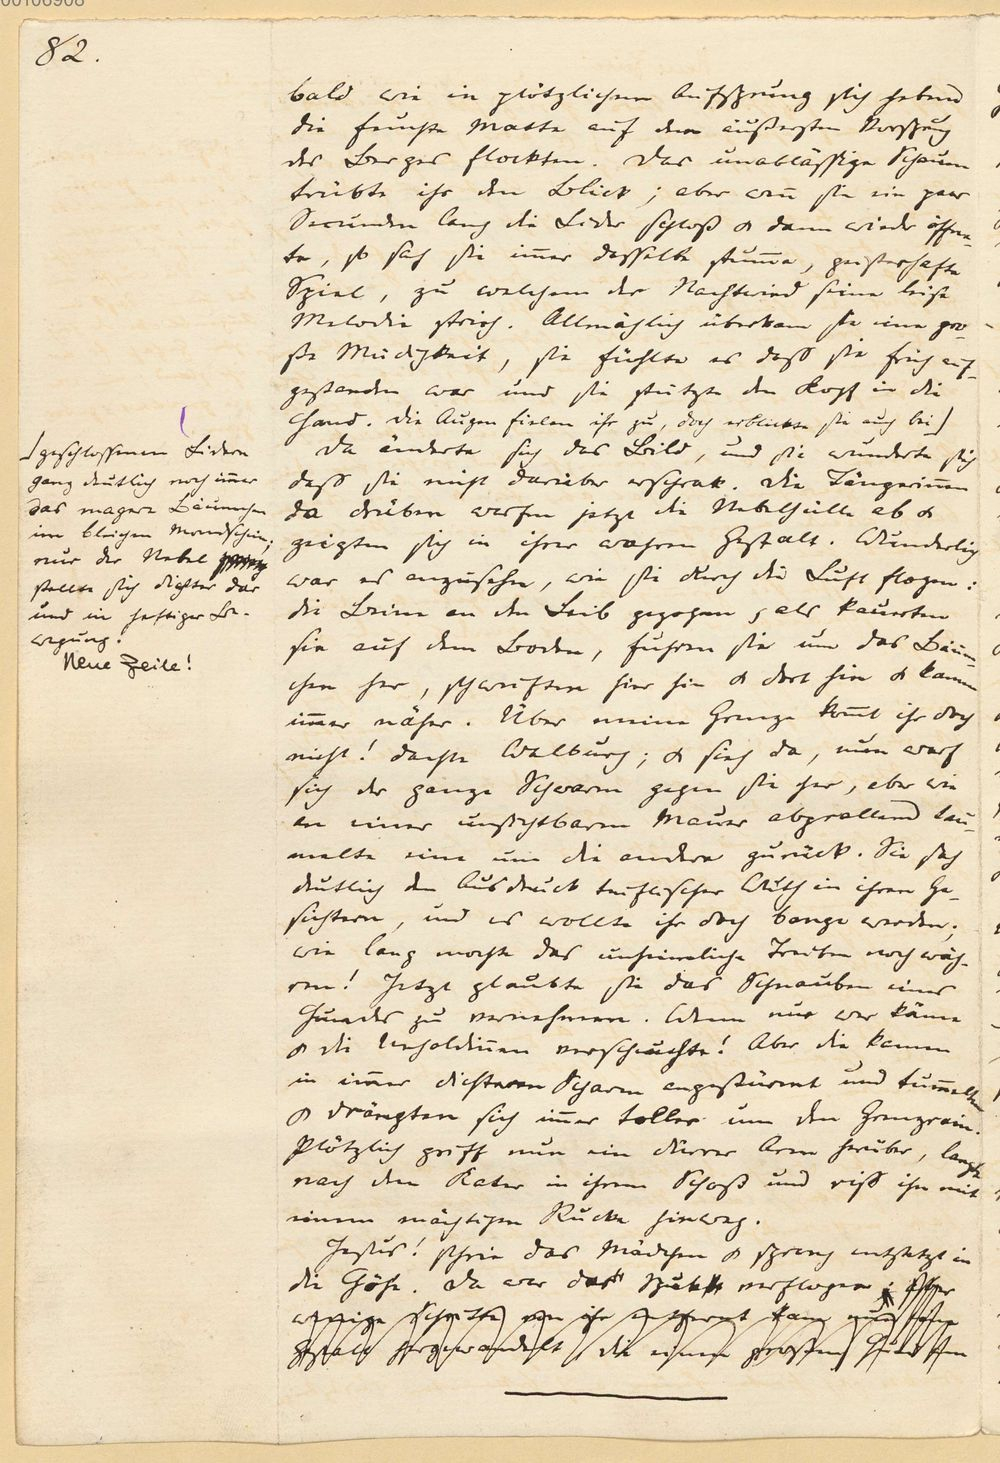 00106908
82.
bald wie in plötzlichem Aufsprung sich hebend
die feuchte Matte auf dem äußersten Vorsprung
des Berges flockten. Das unablässige Schaun
trübte ihr den Blick; aber wenn sie ein paar
Secunden lang die Lider schloß & dann wieder öffne-
te, so sah sie immer dasselbe stumme, geisterhafte
Spiel, zu welchem der Nachtwind seine leise
Melodie strich. Allmählich überkam sie eine gro-
ße Müdigkeit, sie fühlte es daß sie früh auf-
gestanden war und sie stützte den Kopf in die
Hand. Die Augen fielen ihr zu, doch erblickte sie auch bei
geschlossenen Lidern
ganz deutlich noch immer
das magere Bäumchen
im bleichen Mondschein;
nur der Nebel
stellte sich dichter dar
und in heftiger Be-
wegung.
Neue Zeile!
Da änderte sich das Bild, und sie wunderte sich
daß sie nicht darüber erschrak. Die Tänzerinnen
da drüben warfen jetzt die Nebelhülle ab &
zeigten sich in ihrer wahren Gestalt. Wunderlich
war es anzusehn, wie sie durch die Luft flogen:
die Beine an den Leib gezogen, als kauerten
sie auf dem Boden, fuhren sie um das Bäum-
chen her, schweiften hier hin & dort hin & kamen
immer näher. Über meine Grenze kommt ihr doch
nicht! dachte Walburg; & sieh da, nun warf
sich der ganze Schwarm gegen sie her, aber wie
an einer unsichtbaren Mauer abprallend tau-
melte eine um die andere zurück. Sie sah
deutlich den Ausdruck teuflischer Wuth in ihren Ge-
sichtern, und es wollte ihr doch bange werden;
wie lang mochte das unheimliche Treiben noch wäh-
ren! Jetzt glaubte sie das Schnauben eines
Hundes zu vernehmen. Wenn nur wer käme
& die Unholdinnen verscheuchte! Aber die kamen
in immer dichteren Scharen angestürmt und tummelten
& drängten sich immer toller um den Grenzrain.
Plötzlich griff nun ein dürrer Arm herüber, langte
nach dem Kater in ihrem Schoß und riß ihn mit
einem mächtigen Rucke hinweg.
Jesus! schrie das Mädchen & sprang entsetzt in
die Höhe. Da war der Spuk verflogen;
wenige Schritte von ihr entfernt kam
Gestalt hergewandelt, die einen großen